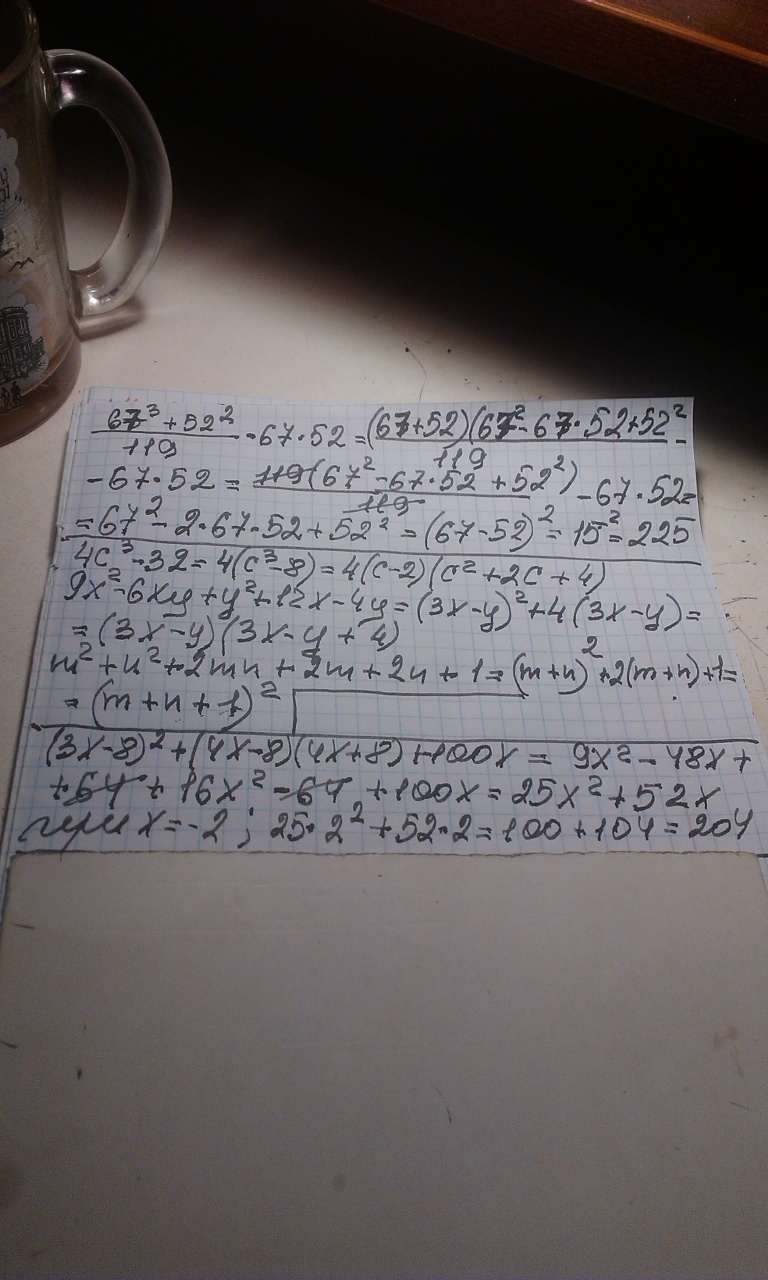 (67³ + 52²)/119 - 67·52 = (67+52)(67² - 67·52 + 52²/119 -
- 67·52 = 119(67² - 67·52 + 52²)/119 - 67·52 =
= 67² - 2·67·52 + 52² = (67-52)² = 15² = 225
4c³ - 32 = 4(c³-8) = 4(c-2)(c² + 2c + 4)
9x² - 6xy + y² + 12x - 4y = (3x-y)² + 4(3x-y) =
= (3x-y)(3x-y + 4)
m² + n² + 2mn + 2m + 2n + 1 = (m+n)² + 2(m+n)+1 =
= (m+n+1)²
(3x-8)² + (4x-8)(4x+8) + 100x = 9x² - 48x +
+ 64 + 16x² - 64 + 100x = 25x² + 52x
при x = -2; 25·2² + 52·2 = 100 + 104 = 204